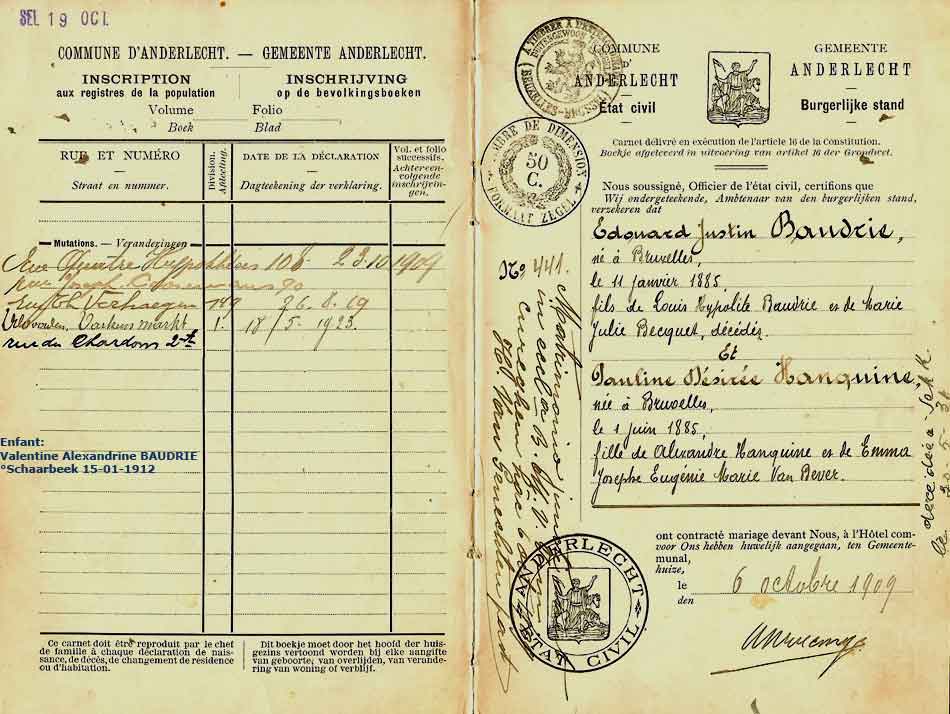 SEL 19 OCT
COMMUNE D'ANDERLECHT. — GEMEENTE ANDERLECHT.
INSCRIPTION
aux registres de la population
INSCHRIJVING
op de bevolkingsboeken
Volume Folio
Boek Blad
RUE ET NUMÉRO
Straat en nummer.
Division.
Afdeeling.
DATE DE LA DÉCLARATION
Dagteekening der verklaring.
Vol. et folio
successifs.
Achtereen-
volgende
inschrijvin-
gen.
Mutations. — Veranderingen
Rue Quatre 106 23.10.1909
rue Joseph 90
Verhaegen 189 26.8.19
Vilvorden, Varkens markt 1. 18/5. 1923.
rue du Chardons 2
Enfant:
Valentine Alexandrine BAUDRIE
°Schaarbeek 15-01-1912
Ce carnet doit être reproduit par le chef
de famille à chaque déclaration de nais-
sance, de décès, de changement de résidence
ou d'habitation.
Dit boekje moet door het hoofd der huis-
gezins vertoond worden bij elke aangifte
van geboorte, van overlijden, van verande-
ring van woning of verblijf.
COMMUNE
D'
ANDERLECHT
État civil
GEMEENTE
ANDERLECHT
Burgerlijke stand
TIMBRE DE DIMENSION
50
C.
FORMAAT ZEGEL
Carnet délivré en exécution de l'article 16 de la Constitution.
Boekje afgeleverd in uitvoering van artikel 16 der Grondwet.
Nous soussigné, Officier de l'état civil, certifions que
Wij ondergeteekende, Ambtenaar van den burgerlijken stand,
verzekeren dat
Edouard Justin Baudrie,
né à Bruxelles,
le 11 janvier 1885,
fils de Louis Hypolite Baudrie et de Marie
Julie Becquet, décédés.
Et
Pauline Désirée Hanquine,
née à Bruxelles,
le 1 juin 1885,
fille de Alexandre Hanquine et de Emma
Josephe Eugénie Marie Van Bever.
ont contracté mariage devant Nous, à l'Hôtel com-
voor Ons hebben huwelijk aangegaan, ten Gemeente-
munal,
huize,
le
den
6 octobre 1909
No 441. Matrimonio
in eccla B. M. V.
Cureghem
décédée
ANDERLECHT
ÉTAT CIVIL